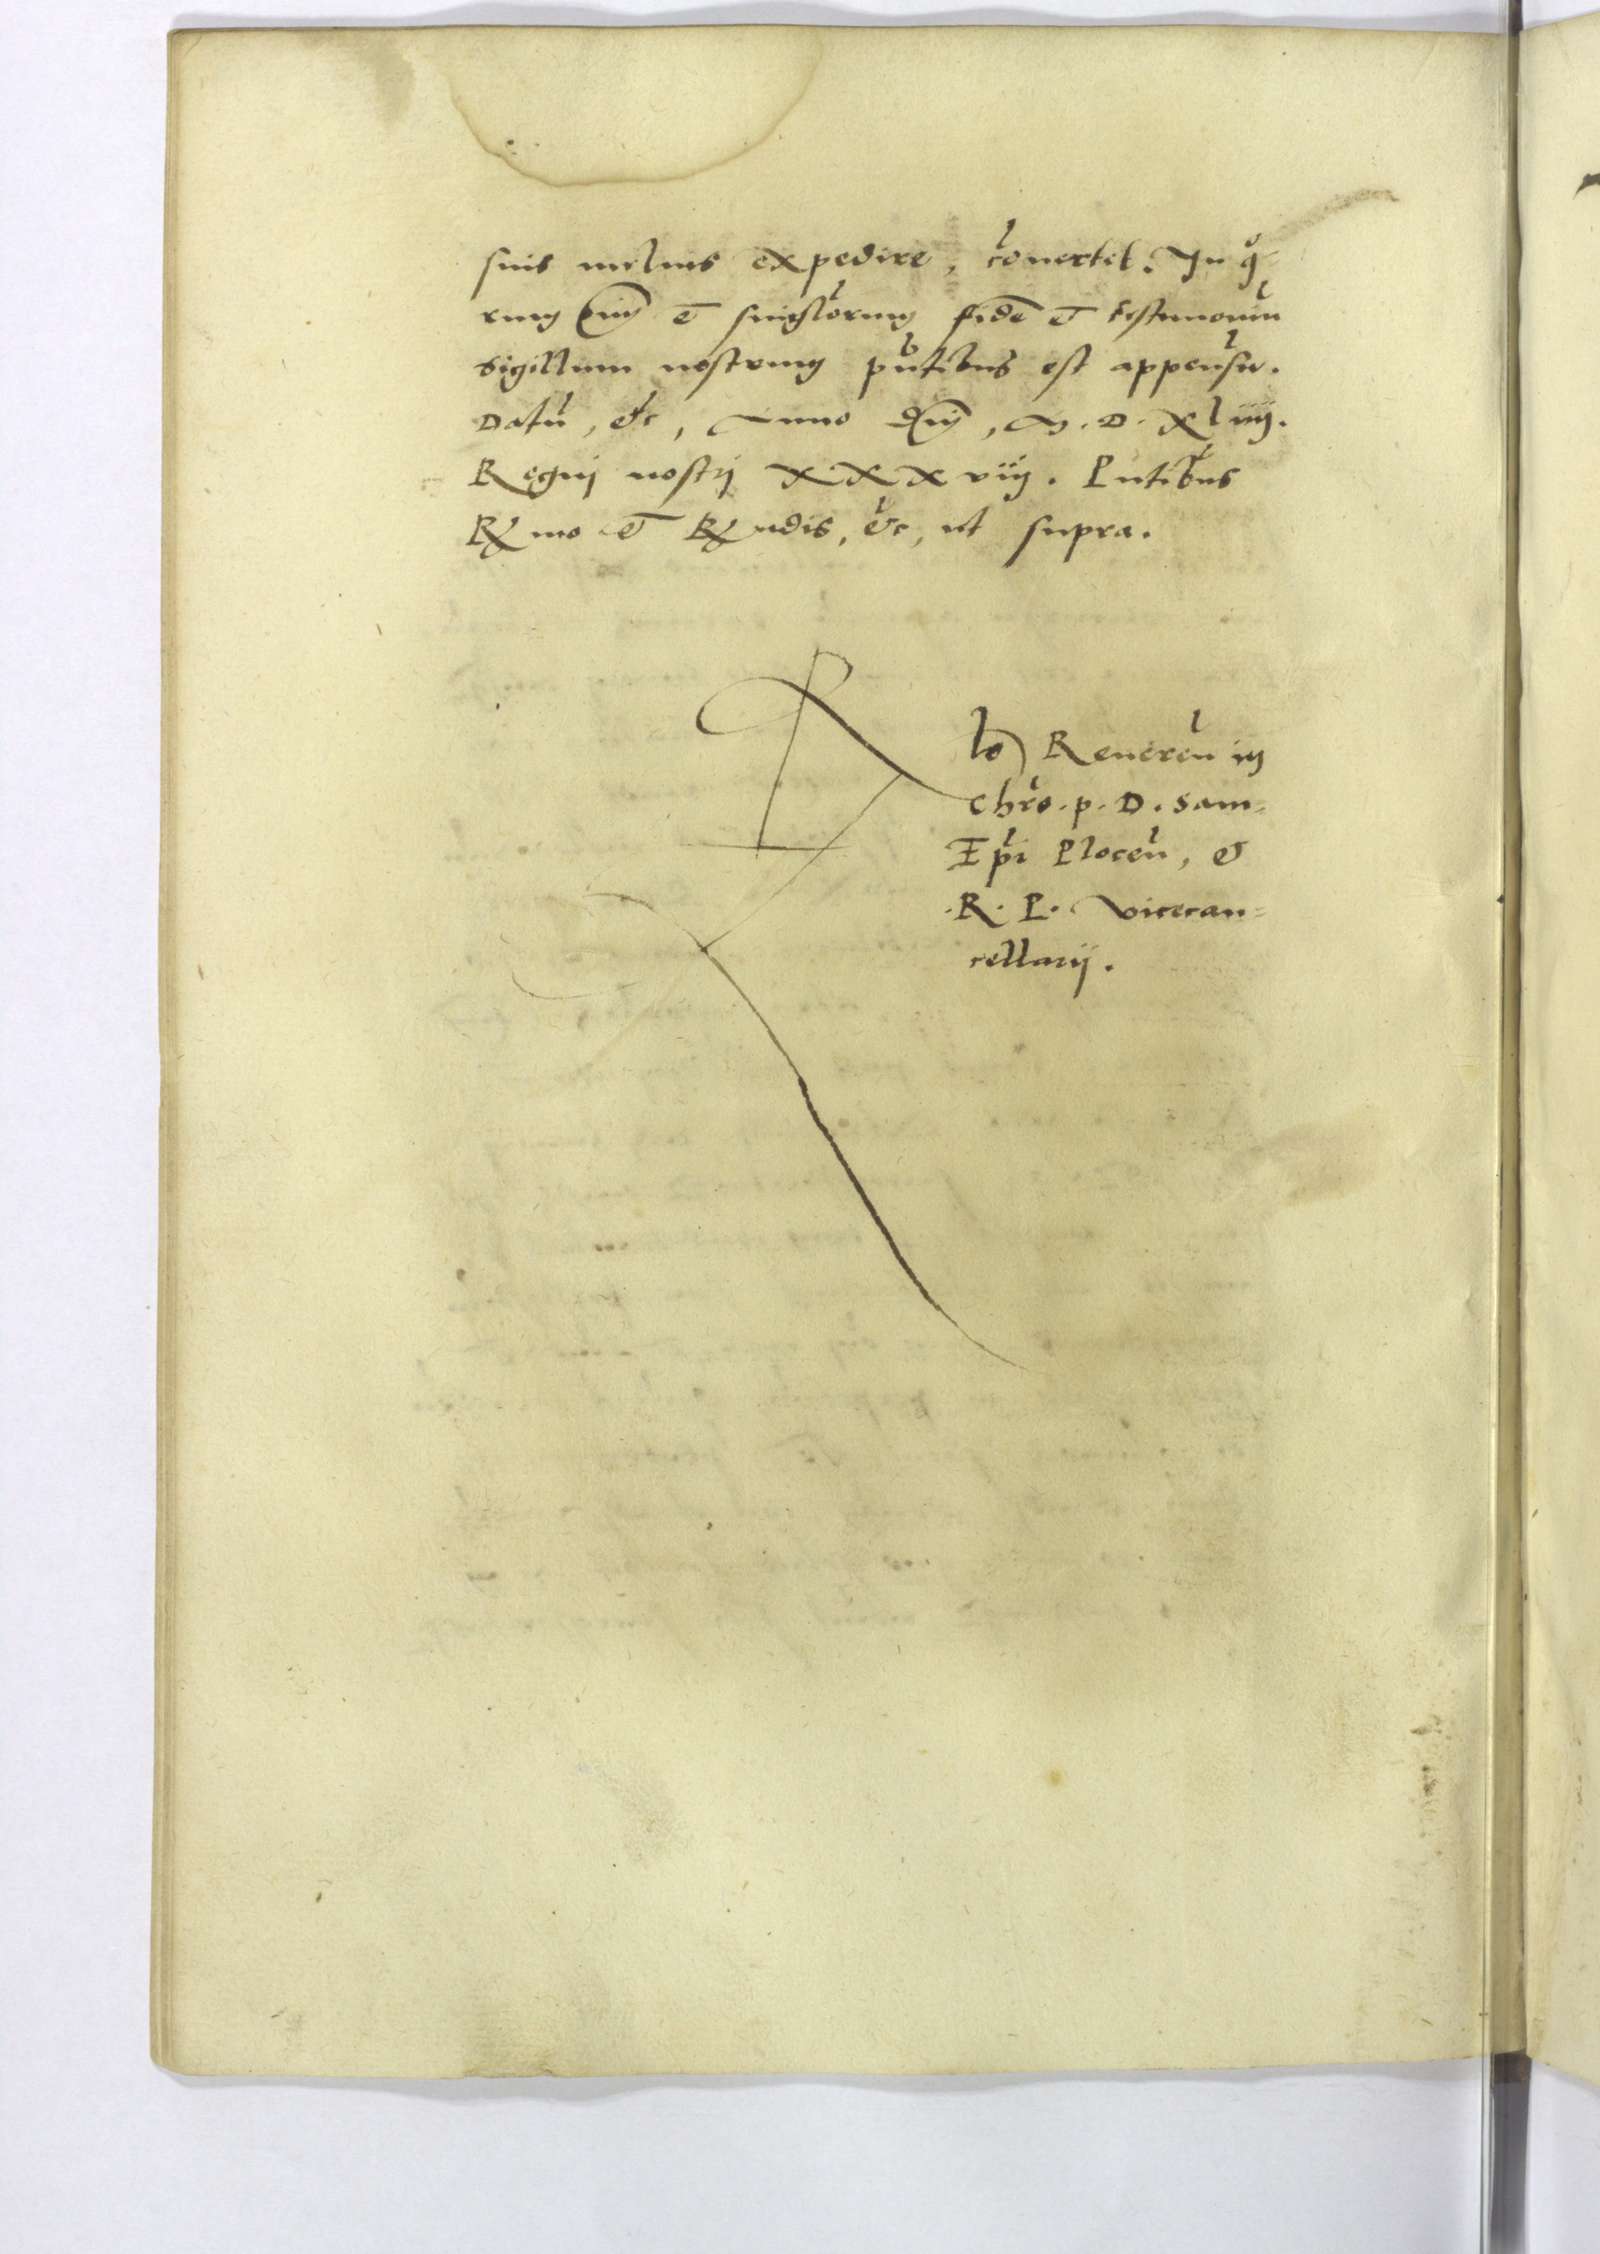 suis melius expedire, convertet. In quo-
rum omm et singlorum fide et testimoniu
Sigillum nostrum pntibus est appensu.
Datu, etc, Anno Dnj, M.D.xliiij.
Regnj nostrj xxxviij. Pntibus
Rmo et Rndis, etc, ut supra.
Ro Reveren in
Chro. p. D. Sam=
Epi Plocen, et
R. P. Vicecan=
cellarij.